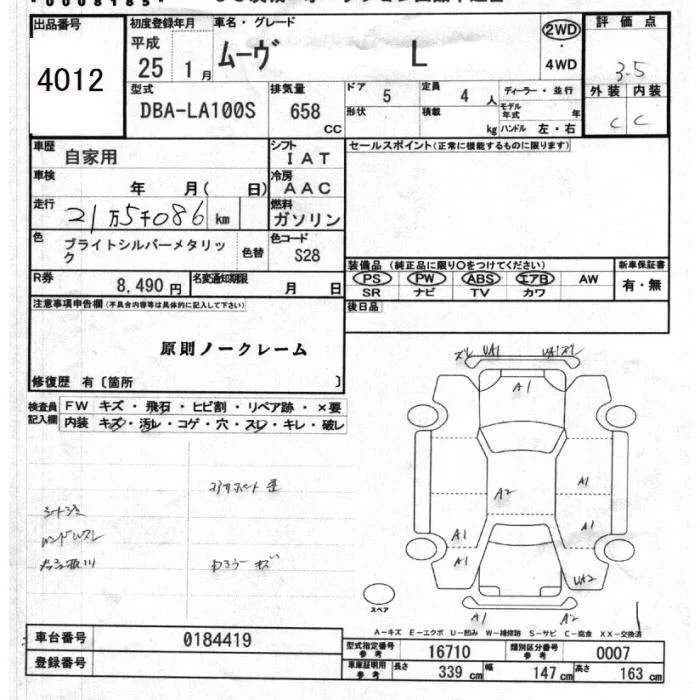 出品番号 4012
初度登録年月 平成 25 1 月
車名・グレード ムーヴ L
2WD ・ 4WD
評価点 3.5
外装 内装
C C
型式 DBA-LA100S
排気量 658 CC
ドア 5
定員 4 人
形状
積載 kg
ディーラー・並行
モデル年式 年
ハンドル 左・右
車歴 自家用
シフト IAT
車検 年 月( 日)
冷房 AAC
走行 21万5千086 km
燃料 ガソリン
色 ブライトシルバーメタリック
色替
色コード S28
R券 8,490 円
名変通知期限 月 日
セールスポイント(正常に機能するものに限ります)
装備品 (純正品に限り○をつけてください)
PS PW ABS エアB AW
SR ナビ TV カワ
新車保証書
有・無
後日品
注意事項申告欄(不具合内容等は具体的に記入して下さい)
原則ノークレーム
修復歴 有〔箇所 〕
検査員記入欄
FW キズ・飛石・ヒビ割・リペア跡・×要
内装 キズ・汚レ・コゲ・穴・スレ・キレ・破レ
A1
A2
A1
A1
A1
A1
UA2
A1
A2
スペア
A-キズ E-エクボ U-凹み W-補修跡 S-サビ C-腐食 XX-交換済
車台番号 0184419
登録番号
型式指定番号 参考 16710
類別区分番号 参考 0007
車庫証明用 参考 長さ 339 cm 幅 147 cm 高さ 163 cm